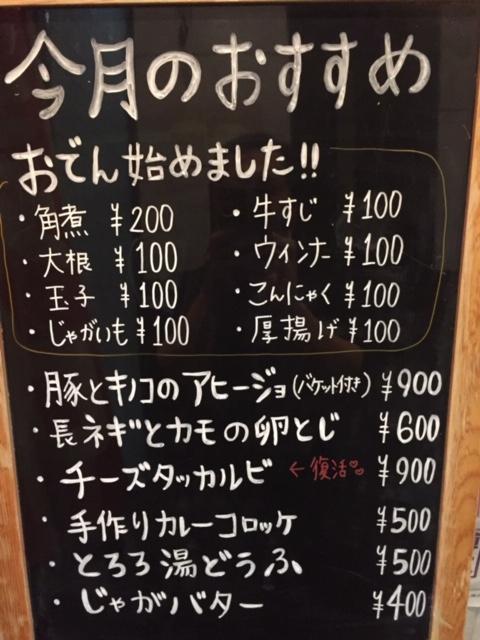 今月のおすすめ
おでん始めました!!
・角煮 ¥200 ・牛すじ ¥100
・大根 ¥100 ・ウィンナー ¥100
・玉子 ¥100 ・こんにゃく ¥100
・じゃがいも ¥100 ・厚揚げ ¥100
・豚とキノコのアヒージョ(バケット付き) ¥900
・長ネギとカモの卵とじ ¥600
・チーズタッカルビ ←復活♡♡ ¥900
・手作りカレーコロッケ ¥500
・とろろ湯どうふ ¥500
・じゃがバター ¥400